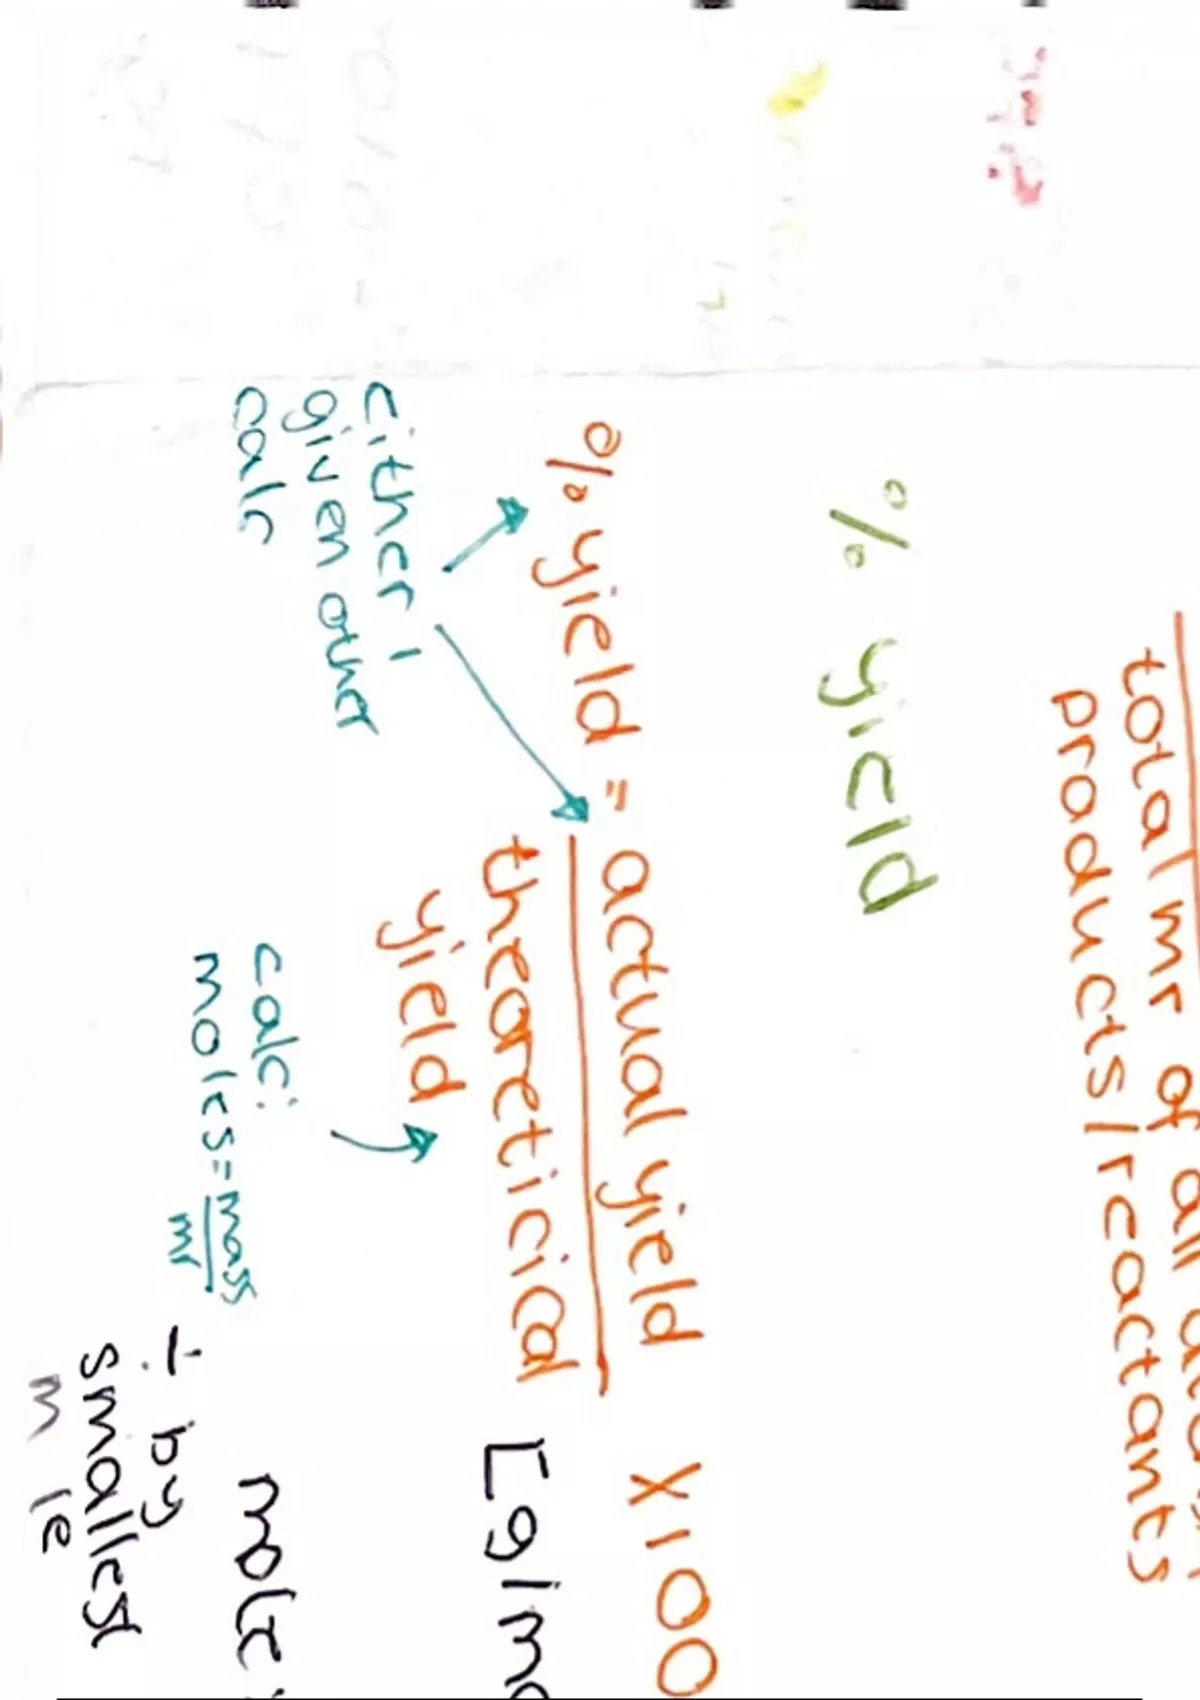 total mr of all
products/reactants
% yield
% yield = actual yield X 100
theoreticical
yield
either 1
given other
calc
calc:
moles = mass
mr
÷ by
smallest